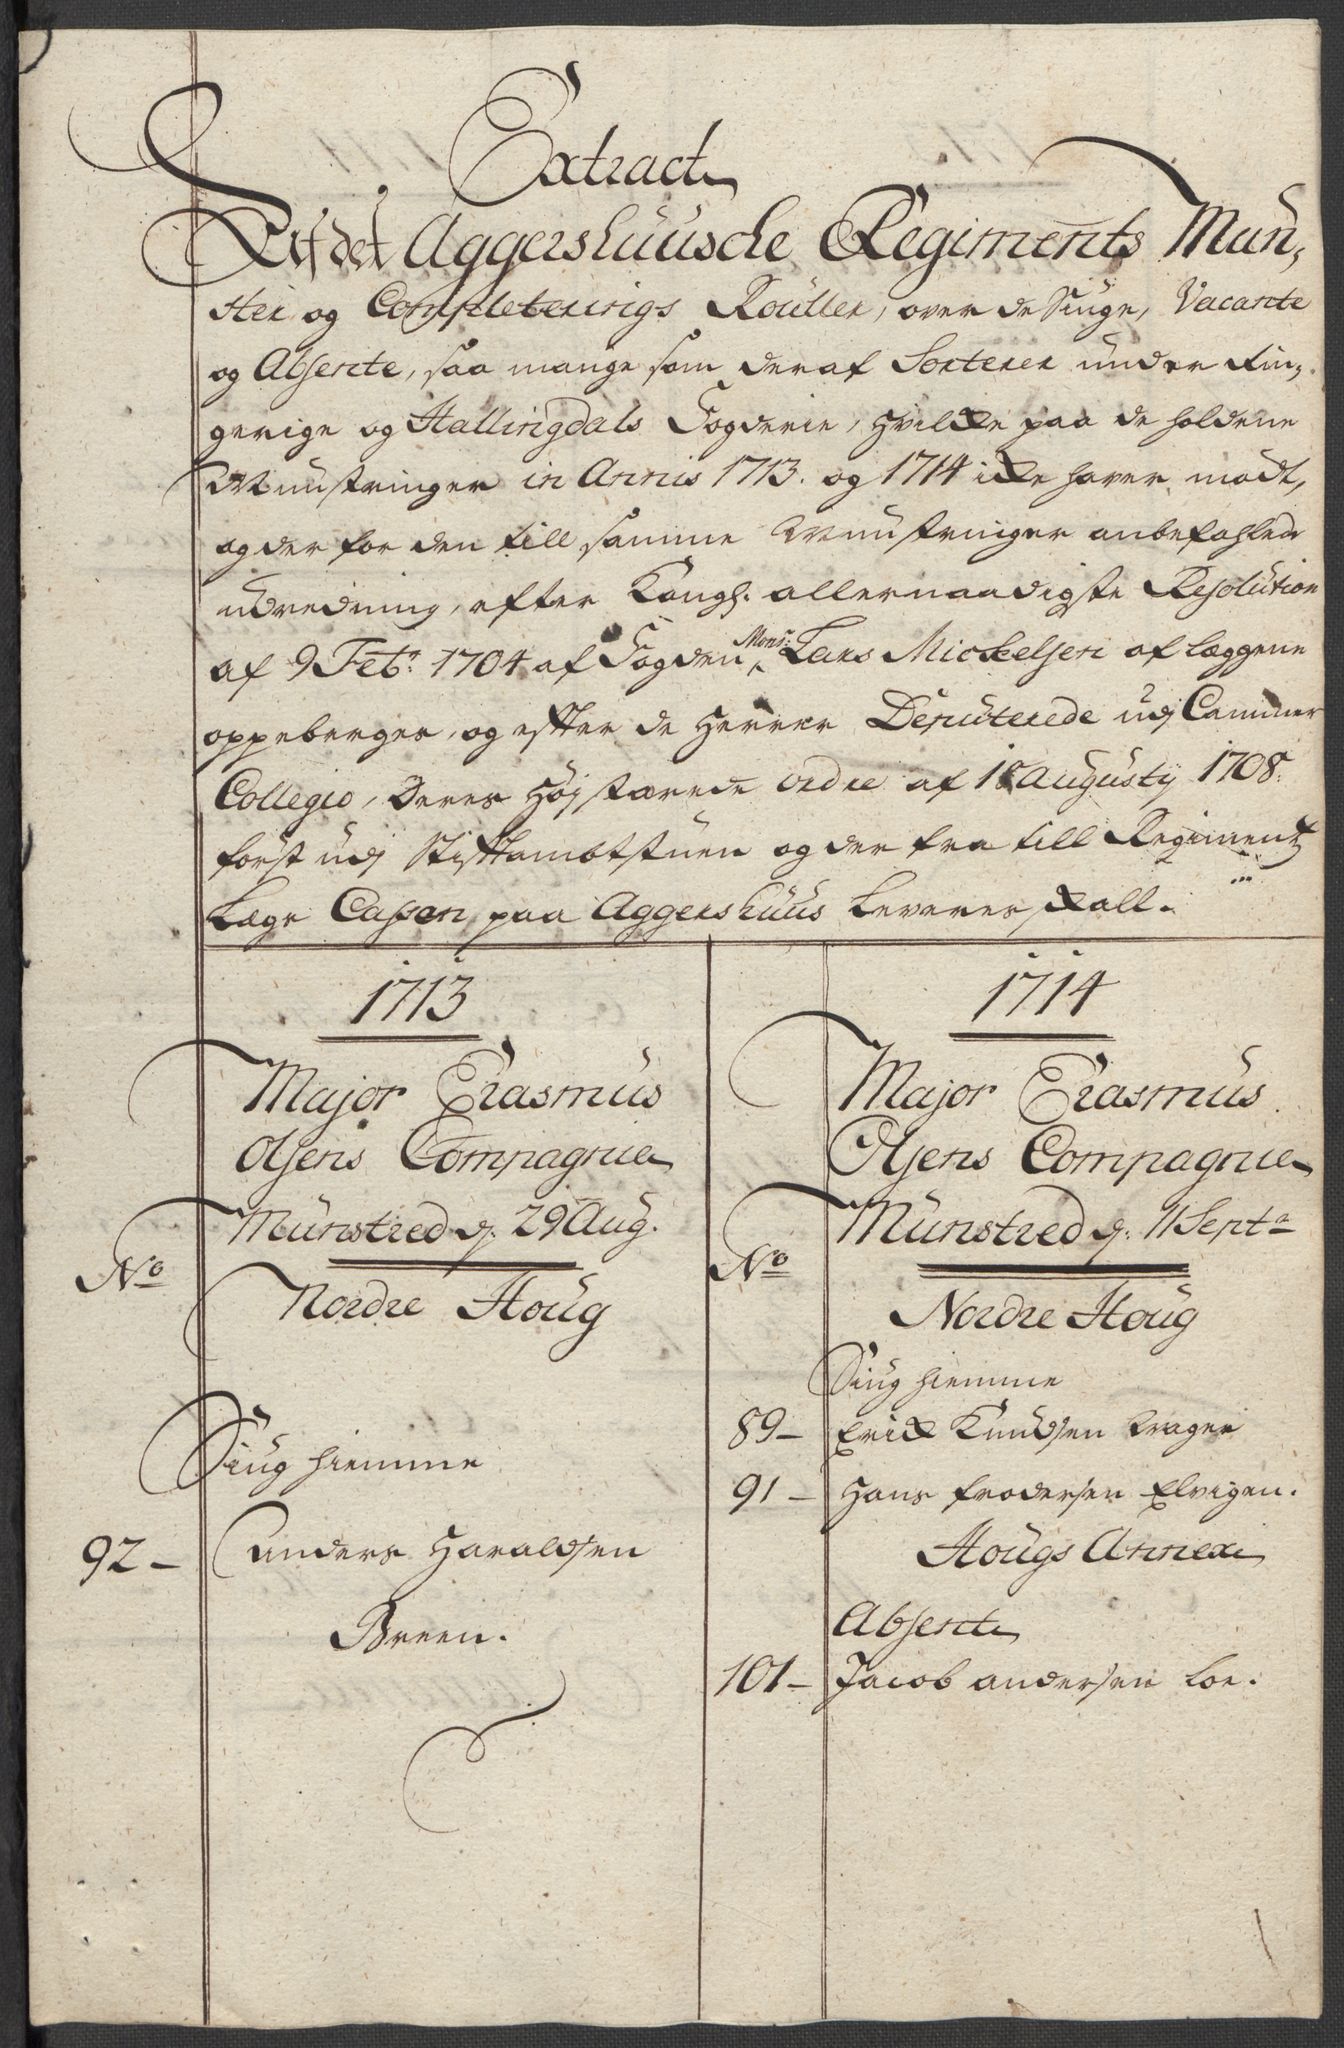 Extract
Af det Aggershuusche Regiments Mun,
ster og Completerings Rouller, over de Siuge, Vacante
og Absente, saa mange som deraf Sorterer under Rin,
gerige og Hallingdals Fogderie, hvilcke paa de holdene
Munstringer in Annis 1713. og 1714 icke haver mødt,
og der for den till samme Munstringer anbefahlede
udredning, efter Kongl. allernaadigste Resolution
af 9 Febr: 1704 af Fogden Monsr: Lars Mickelsen af læggene
oppeberges, og efter de Herrer Deputerede udj Cammer
Collegio, Deres Høj stærede ordre af 18 Augustij 1708.
først udj Stiftambtstuen og der fra till Regimentz
Lægs Cassen paa Aggershuus Leveres skall.
1713
Major Erasmus
Olsens Compagnie
Munstred d. 29 Aug.
No
Nordre Houg
Siug hiemme
92 - Anders Haraldsen
Breen.
1714
Major Erasmus
Olsens Compagnie
Munstred d: 11 Septr
No
Nordre Houg
Siug hiemme
89 - Erick Knudsen Krager
91 - Hans Frodersen Elvigen.
Hougs Annexe
Absente
101 - Jacob Andersen Loe.